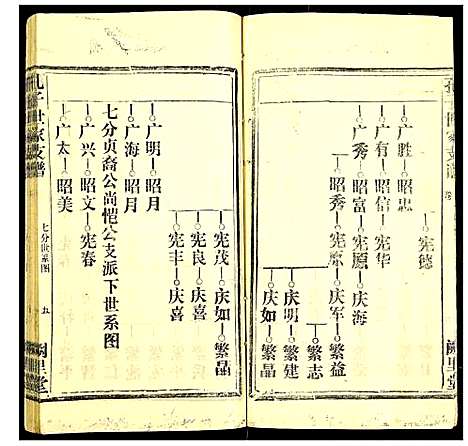 宪德
广胜 昭忠
广有 昭信 宪华
广秀 昭富 宪原 庆海
昭秀 宪原 庆军 繁益
繁志
庆明 繁建
庆如 繁晶
阙里堂
宪茂 庆如 繁晶
宪良 庆喜
宪丰 庆喜
广明 昭月
广海 昭月
七分贞裔公尚恺公支派下世系图
广兴 昭文 宪春
广太 昭美
七分世系图
五
阙里堂